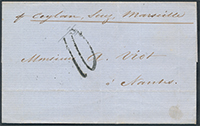 p Ceylan, Suez Marseille
Monsieur A. Viot
à Nantes
10